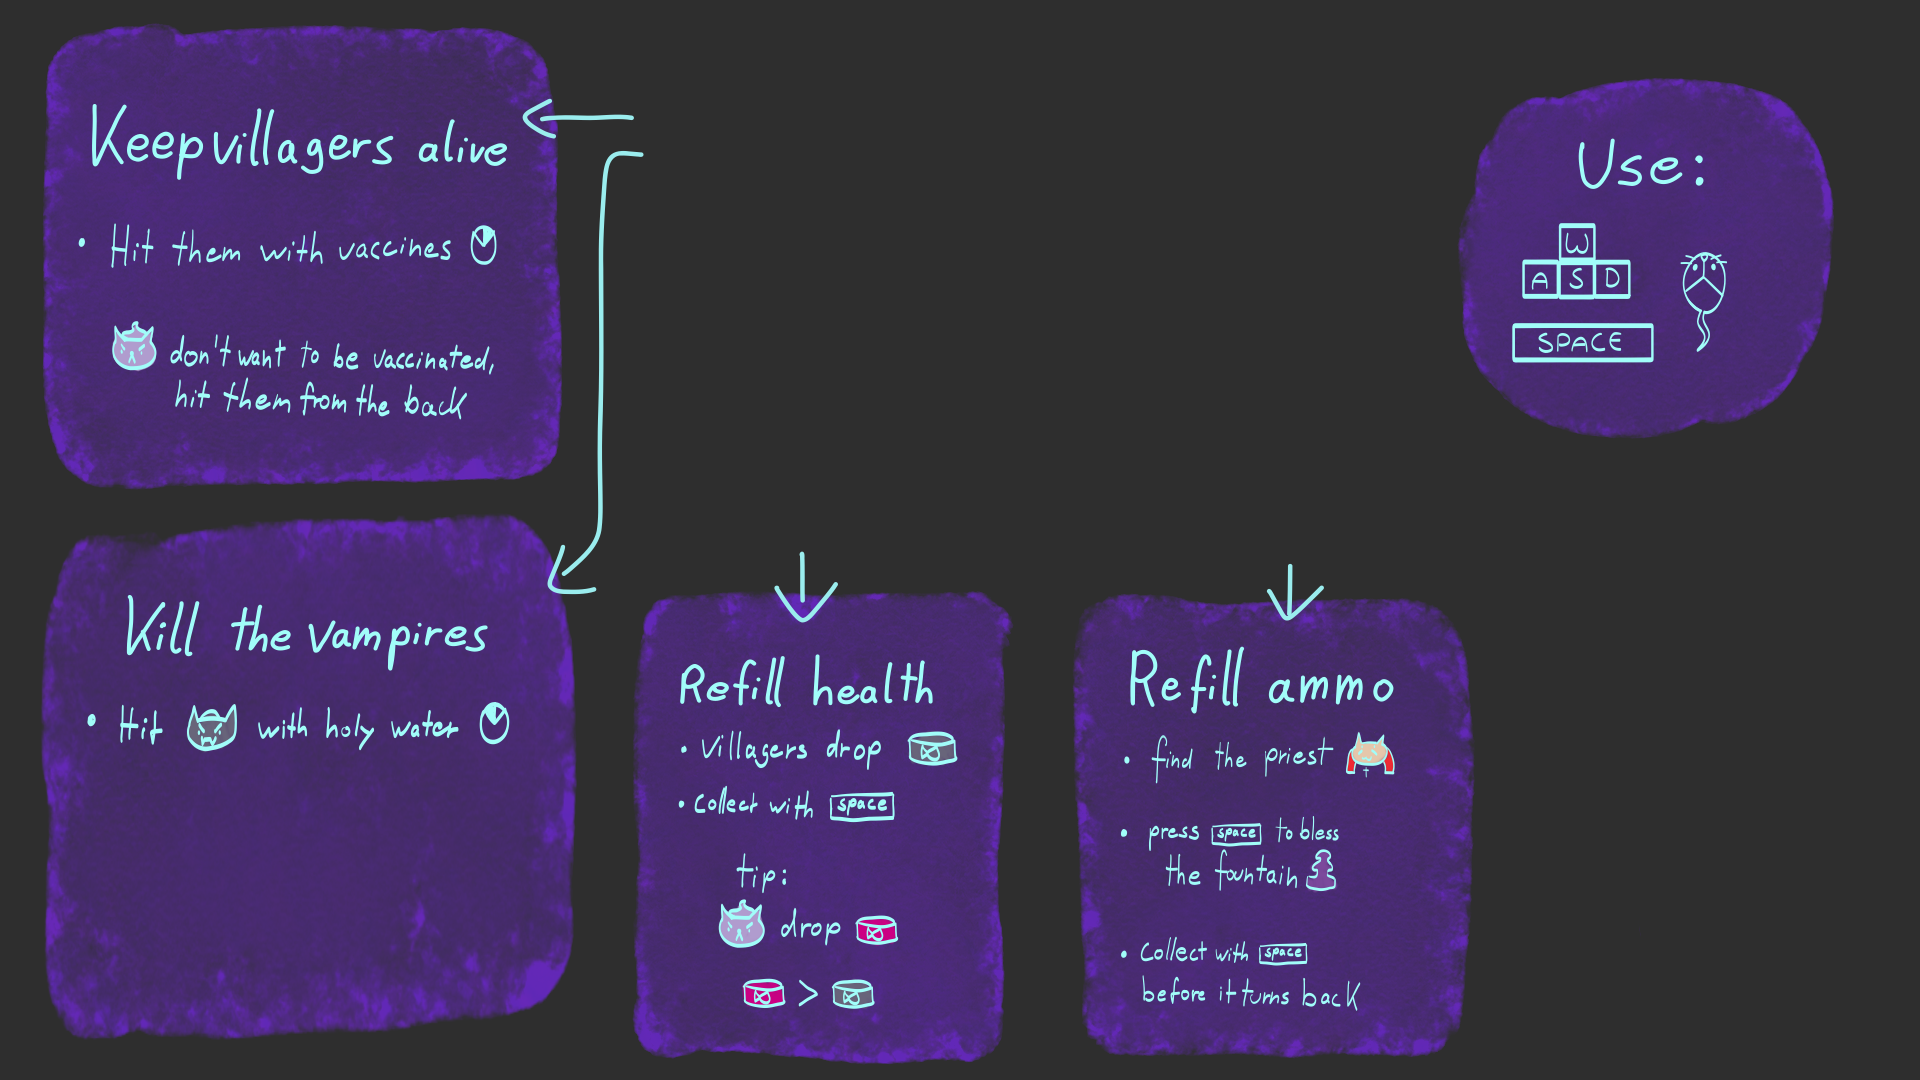 Keep villagers alive
• Hit them with vaccines
don't want to be vaccinated,
hit them from the back
Kill the vampires
• Hit with holy water
Refill health
• Villagers drop
• Collect with space
tip:
drop
>
Refill ammo
• find the priest
• press space to bless
the fountain
• Collect with space
before it turns back
Use:
W
A S D
SPACE